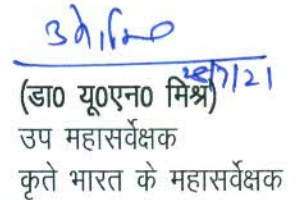 28/7/21
(डा0 यू0एन0 मिश्र)
उप महासर्वेक्षक
कृते भारत के महासर्वेक्षक